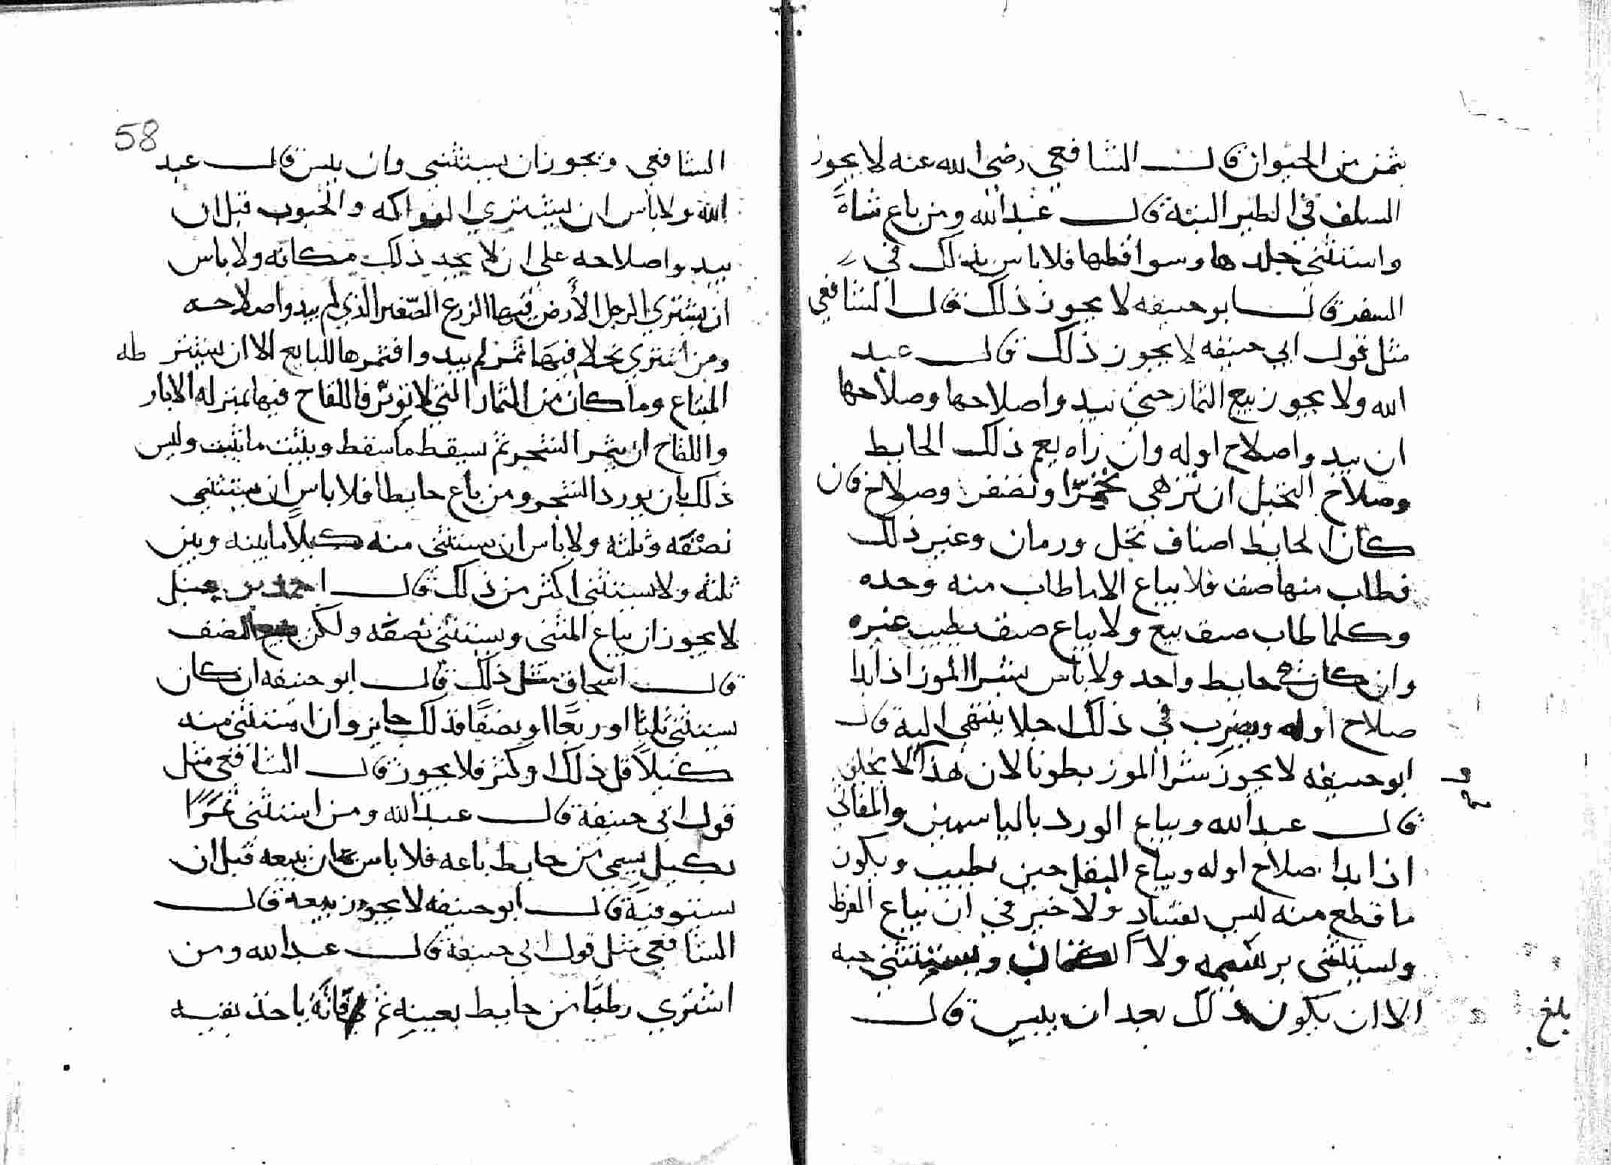 بثمن من الحيوان قال الشافعي رضي الله عنه لا يجوز
السلف في الطير البتة قال عبد الله ومن باع شاة
واستثنى جلدها وسواقطها فلا باس بذلك في
السفر قال ابو حنيفه لا يجوز ذلك قال الشافعي
مثل قول ابي حنيفه لا يجوز ذلك قال عبد
الله ولا يجوز بيع الثمار حتى يبدوا صلاحها وصلاحها
ان يبدوا صلاح اوله وان راه يعم ذلك الحايط
وصلاح النخيل ان تزهي وتصفر وصلاح فان
كان الحايط اصناف نخل ورمان وغير ذلك
فطاب منها صنف فلا يباع الا ما طاب منه وحده
وكلما طاب صنف بيع ولا يباع صنف بطيب غيره
وان كان في حايط واحد ولا باس بشرا الموز اذا بدا
صلاح اوله ويضرب في ذلك اجلا ينتهي اليه قال
ابو حنيفه لا يجوز شرا الموز بطونا لان هذا لا يخلق
قال عبد الله ويباع الورد بالياسمين والمقاثي
اذا بدا صلاح اوله ويباع البقل حين يطيب ويكون
ما قطع منه ليس بفساد ولا خير في ان يباع القرظ
ويستثنى برسيمه ولا الكتان ويستثنى حبه
الا ان يكون ذلك بعد ان ييبس قال
بلغ
58
الشافعي ويجوز ان يستثني وان يبس قال عبد
الله ولا باس ان يشتري الفواكه والحبوب قبل ان
يبدوا صلاحه على ان لا يجد ذلك مكانه ولا باس
ان يشتري الرجل الأرض فيها الزرع الصغير الذي لم يبدوا صلاحه
ومن اشترى نخلا فيها ثمر لم يبدوا فثمرها للبايع الا ان يشترطه
المبتاع وما كان من الثمار التي لا توبر فاللقاح فيها بمنزله الابار
واللقاح ان يثمر الشجر ثم يسقط ما سقط ويثبت ما يثبت وليس
ذلك بان يورد الشجر ومن باع حايطا فلا باس ان يستثني
نصفه وثلثه ولا باس ان يستثني منه كيلا ما بينه وبين
ثلثه ولا يستثني اكثر من ذلك قال احمد بن حنبل
لا يجوز ان يباع المثنى ويستثني نصفه ولكن النصف
قال اسحاق مثل ذلك قال ابو حنيفه ان كان
يستثني ثلثا او ربعا او نصفا فذلك جايز وان استثنى منه
كيلا قل ذلك او كثر فلا يجوز قال الشافعي مثل
قول ابي حنيفة قال عبد الله ومن استثنى ثمرا
بكيل يسمي من حايط باعه فلا باس ان يبيعه قبل ان
يستوفيه قال ابو حنيفه لا يجوز بيعه قال
الشافعي مثل قول ابي حنيفه قال عبد الله ومن
اشترى رطبا من حايط بعينه ثم فاته ياخذ بقيه